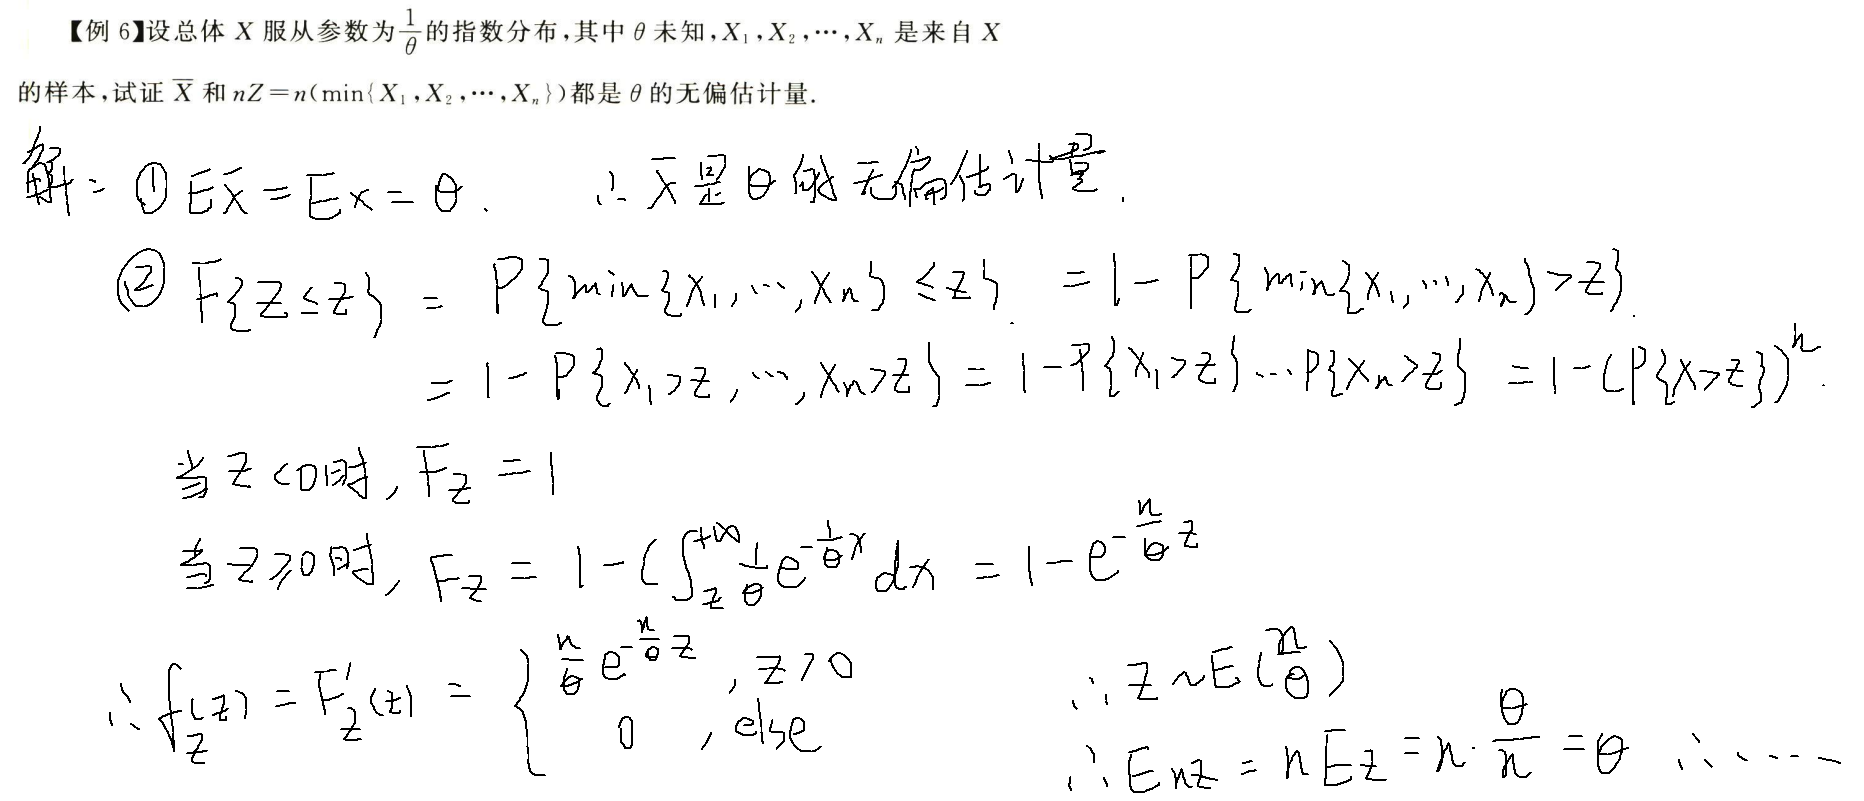 【例 6】设总体 X 服从参数为 1/θ 的指数分布,其中 θ 未知,X₁,X₂,⋯,Xₙ 是来自 X
的样本,试证 X̅ 和 nZ=n(min{X₁,X₂,⋯,Xₙ})都是 θ 的无偏估计量.
解: ① EX̅ = EX = θ. ∴ X̅ 是 θ 的 无偏估计量.
② F{Z≤z} = P{min{X₁,⋯,Xₙ} ≤z}. = 1 - P{min{X₁,⋯,Xₙ}>z}.
= 1 - P{X₁>z,⋯,Xₙ>z} = 1-P{X₁>z}⋯P{Xₙ>z} = 1-(P{X>z})ⁿ.
当 z<0时, F_Z = 1
当 z≥0时, F_Z = 1-(∫_z^{+∞} 1/θ e^{-1/θ x} dx = 1-e^{-n/θ z}
∴ f_Z(z) = F'_Z(z) = { n/θ e^{-n/θ z}, z>0
0 , else
∴ Z~E(n/θ)
∴ EnZ = nEZ = n·θ/n = θ ∴⋯⋯